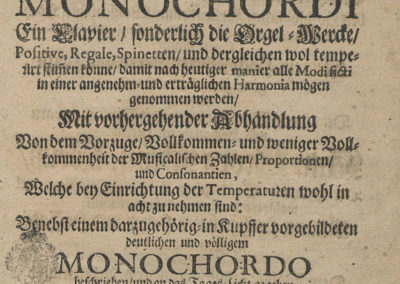 MONOCHORDI
Ein Clavier / sonderlich die Orgel-Wercke /
Positive, Regale, Spinetten / und dergleichen wol tempe-
rirt stimen könne / damit nach heutiger manier alle Modi ficti
in einer angenehm- und erträglichen Harmonia mögen
genommen werden /
Mit vorhergehender Abhandlung
Von dem Vorzuge / Vollkommen- und weniger Voll-
kommenheit der Musicalischen Zahlen / Proportionen /
und Consonantien,
Welche bey Einrichtung der Temperaturen wohl in
acht zu nehmen sind:
Benebst einem darzugehörig- in Kupffer vorgebildeten
deutlichen und völligem
MONOCHORDO
beschrieben / und an das Tages-Licht gegeben